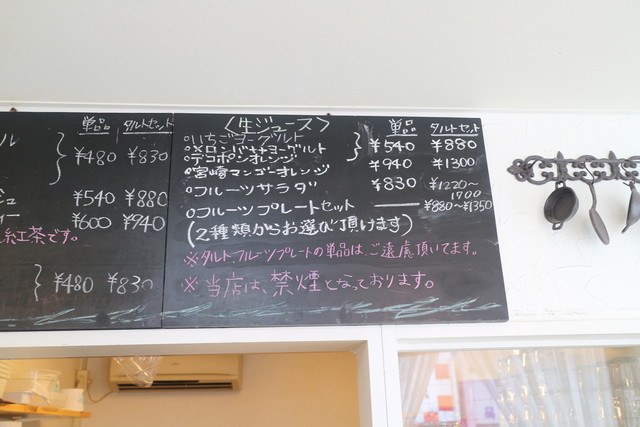 単品 タルトセット
ル
¥480 ¥830
¥540 ¥880
ィー ¥600 ¥940
紅茶です。
¥480 ¥830
〈生ジュース〉 単品 タルトセット
○いちごヨーグルト
○メロンバナナヨーグルト ¥540 ¥880
○デコポンオレンジ
○宮崎マンゴーオレンジ ¥940 ¥1300
○フルーツサラダ ¥830 ¥1220~1700
○フルーツプレートセット — ¥880~¥1350
(2種類からお選び頂けます)
※タルト、フルーツプレートの単品は、ご遠慮頂いてます。
※当店は、禁煙となっております。